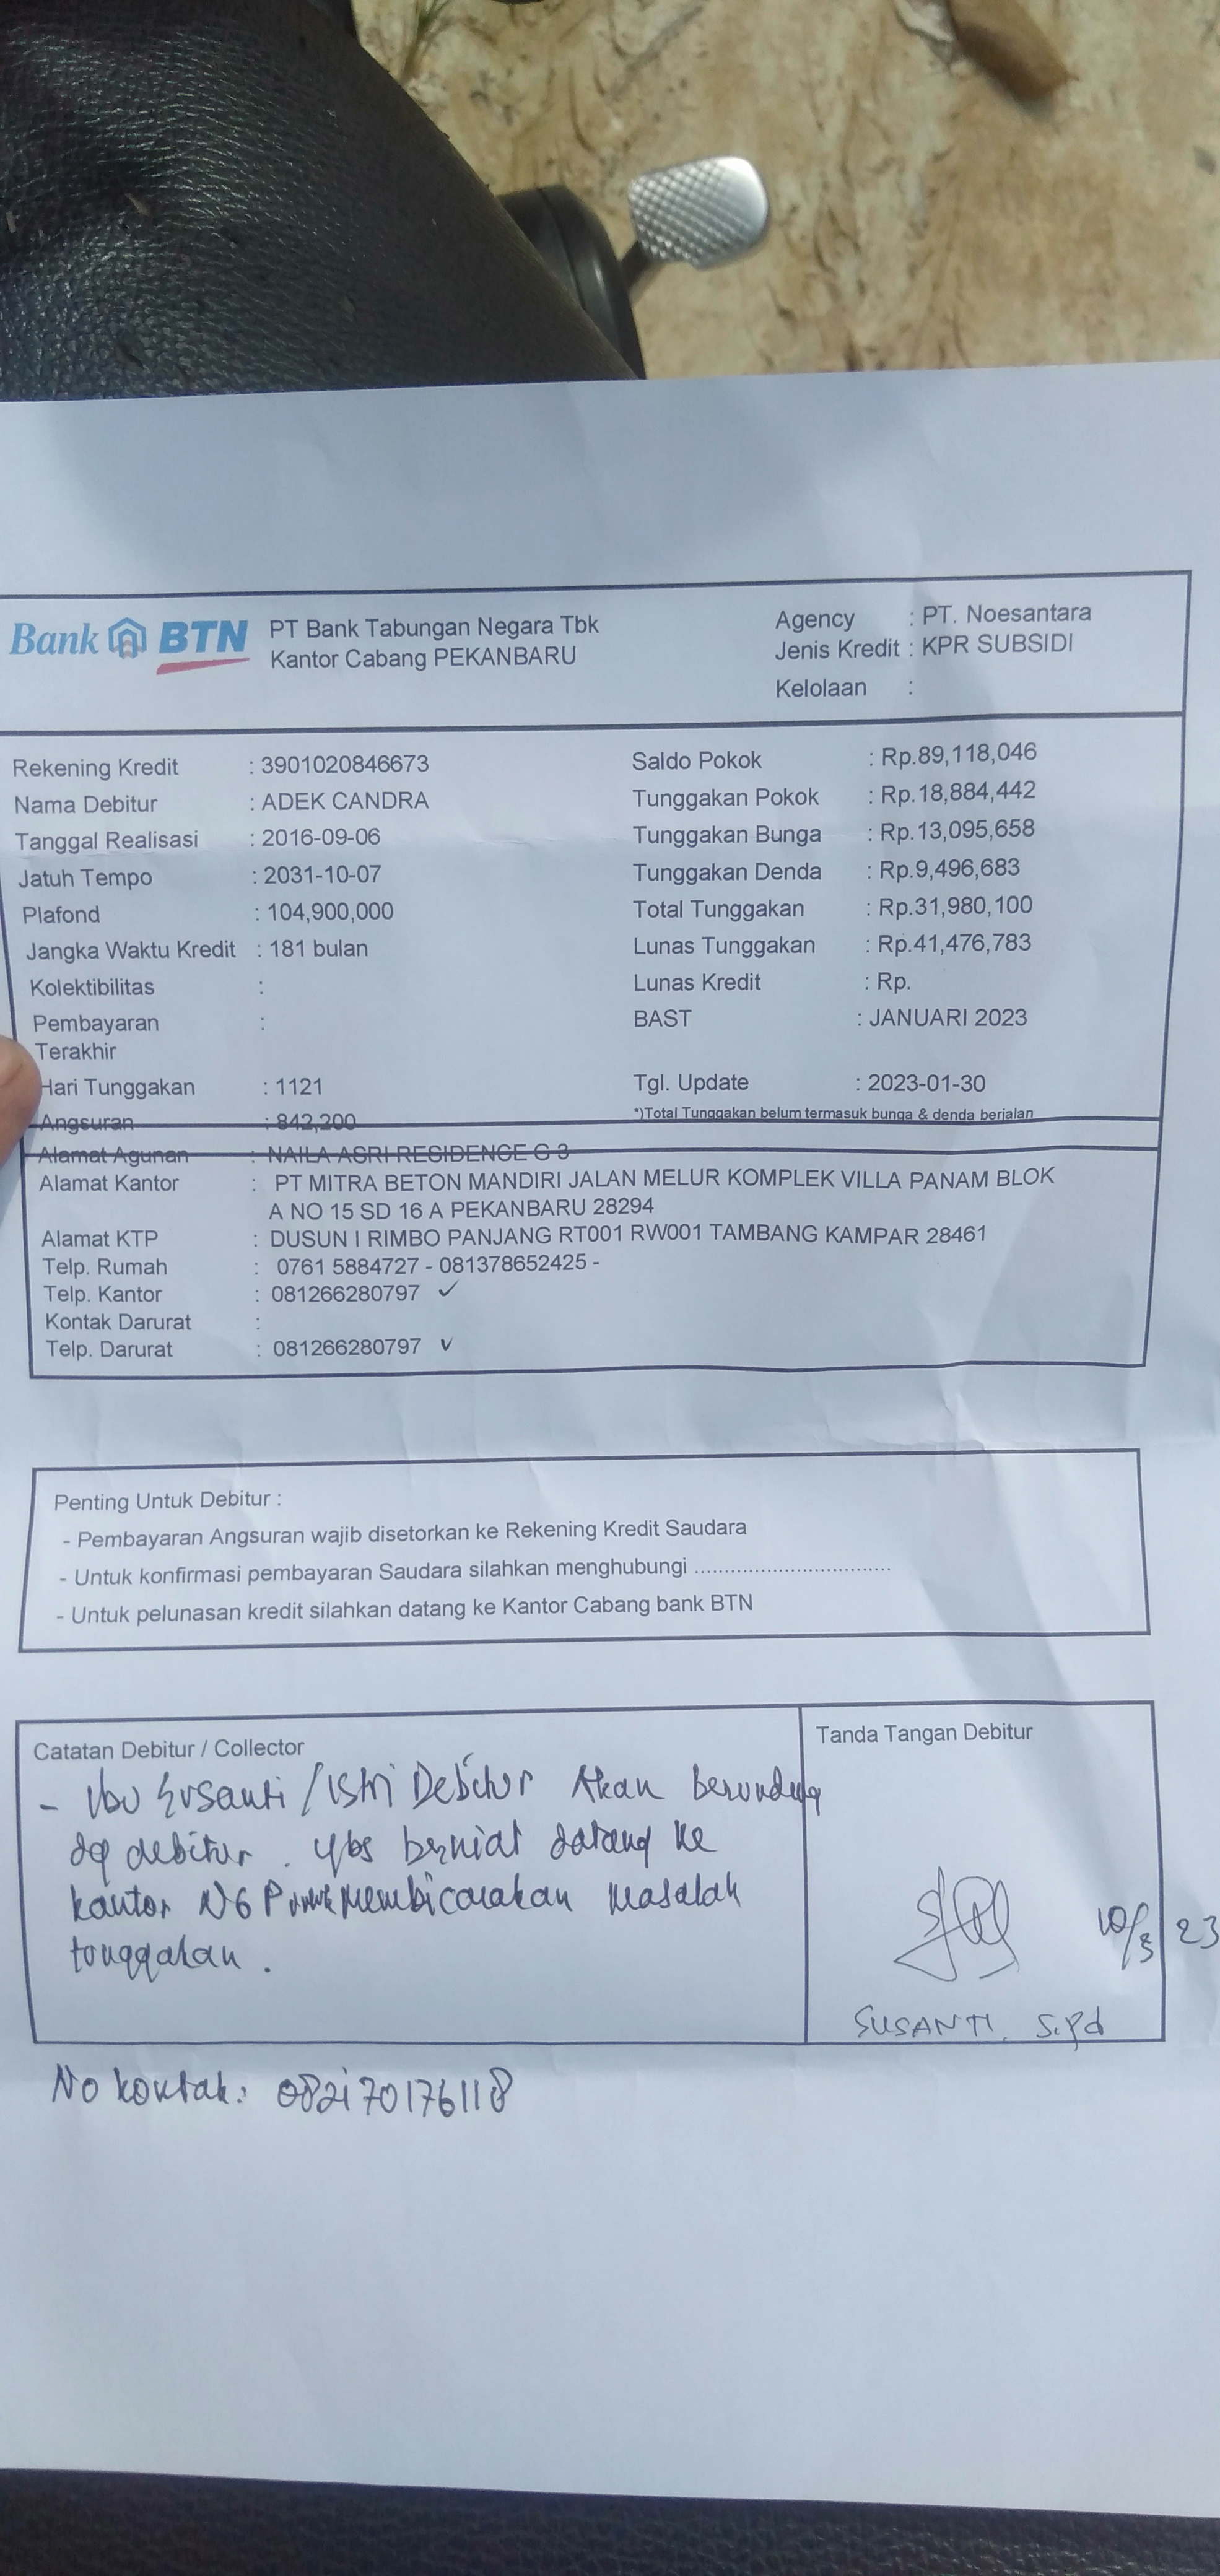 Bank BTN
PT Bank Tabungan Negara Tbk
Kantor Cabang PEKANBARU
Agency : PT. Noesantara
Jenis Kredit : KPR SUBSIDI
Kelolaan :
Rekening Kredit : 3901020846673
Nama Debitur : ADEK CANDRA
Tanggal Realisasi : 2016-09-06
Jatuh Tempo : 2031-10-07
Plafond : 104,900,000
Jangka Waktu Kredit : 181 bulan
Kolektibilitas :
Pembayaran :
Terakhir
Hari Tunggakan : 1121
Angsuran : 842,200
Saldo Pokok : Rp.89,118,046
Tunggakan Pokok : Rp.18,884,442
Tunggakan Bunga : Rp.13,095,658
Tunggakan Denda : Rp.9,496,683
Total Tunggakan : Rp.31,980,100
Lunas Tunggakan : Rp.41,476,783
Lunas Kredit : Rp.
BAST : JANUARI 2023
Tgl. Update : 2023-01-30
*)Total Tunggakan belum termasuk bunga & denda berjalan
Alamat Agunan : NAILA ASRI RESIDENCE G 3
Alamat Kantor : PT MITRA BETON MANDIRI JALAN MELUR KOMPLEK VILLA PANAM BLOK
A NO 15 SD 16 A PEKANBARU 28294
Alamat KTP : DUSUN I RIMBO PANJANG RT001 RW001 TAMBANG KAMPAR 28461
Telp. Rumah : 0761 5884727 - 081378652425 -
Telp. Kantor : 081266280797 ✓
Kontak Darurat :
Telp. Darurat : 081266280797 ✓
Penting Untuk Debitur :
- Pembayaran Angsuran wajib disetorkan ke Rekening Kredit Saudara
- Untuk konfirmasi pembayaran Saudara silahkan menghubungi .................................
- Untuk pelunasan kredit silahkan datang ke Kantor Cabang bank BTN
Catatan Debitur / Collector
- Ibu Susanti / Istri Debitur Akan berunding
dg debitur. Ybs berniat datang ke
kantor NGP membicarakan masalah
tunggakan.
Tanda Tangan Debitur
10/3/23
SUSANTI, S.Pd
No kontak: 082170176118